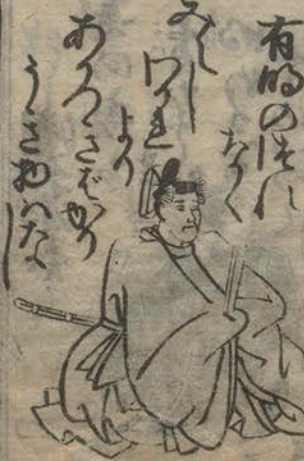 有明のつれ
なく
みえし
わかれ
より
あかつきばかり
うき物はなし